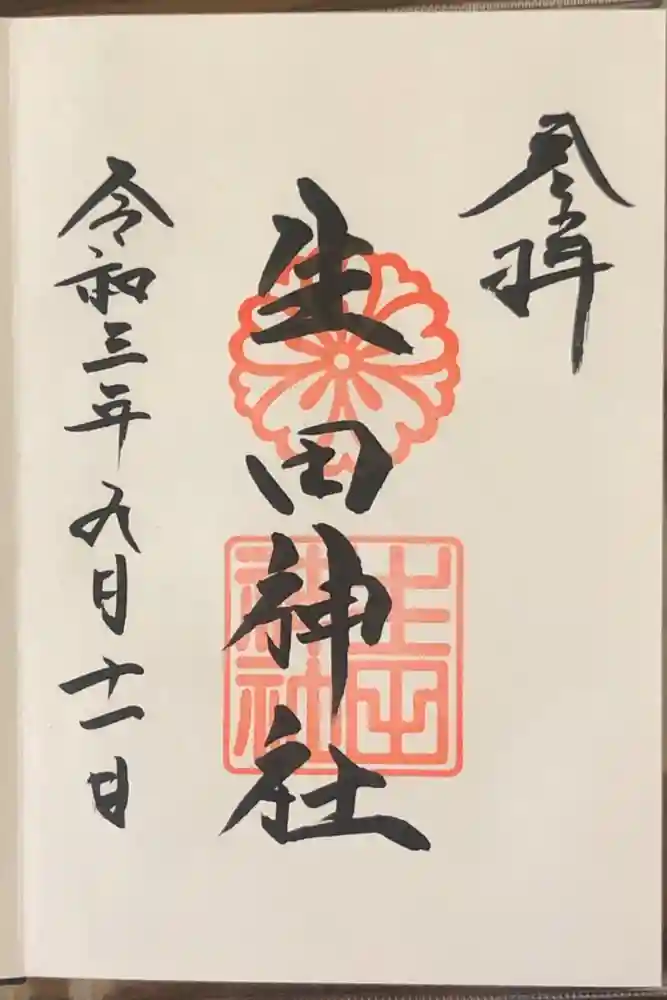 奉拝
生田神社
生田神社
令和三年九月十一日